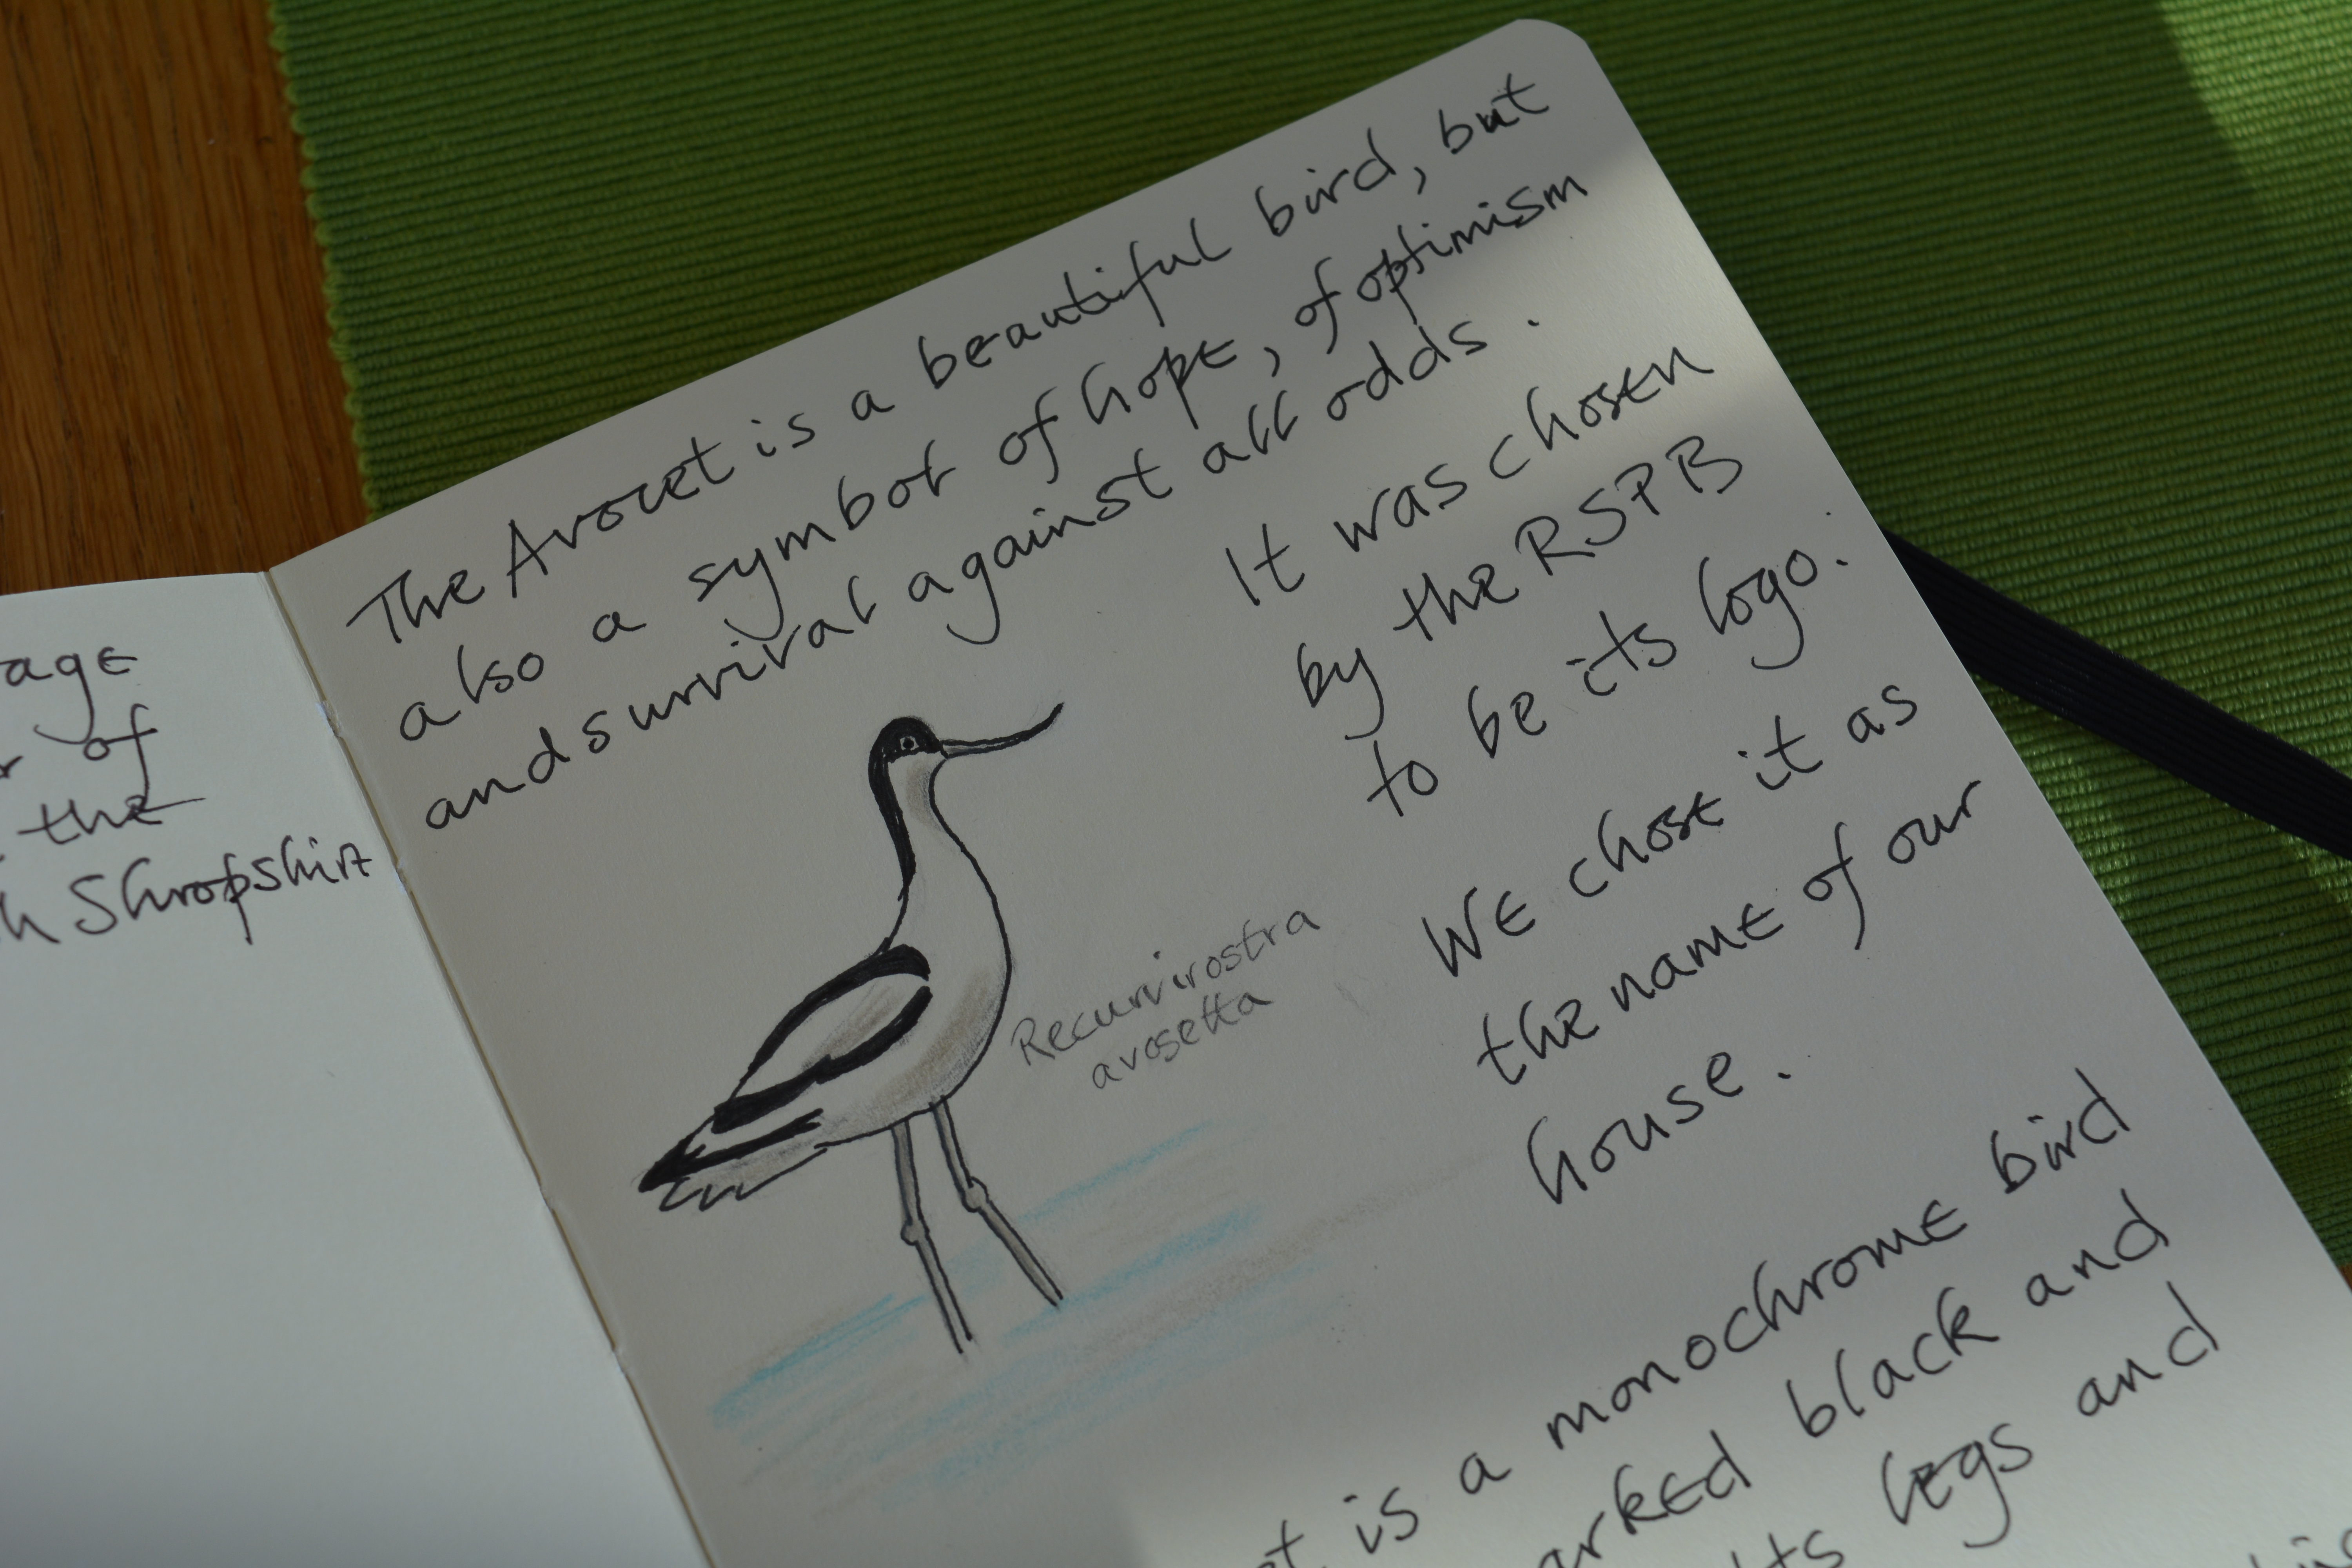 age
of
the
Shropshire
The Avocet is a beautiful bird, but
also a symbol of hope, of optimism
and survival against all odds.
It was chosen
by the RSPB
to be its logo.
We chose it as
the name of our
house.
Recurvirostra
avosetta
is a monochrome bird
black and
legs and